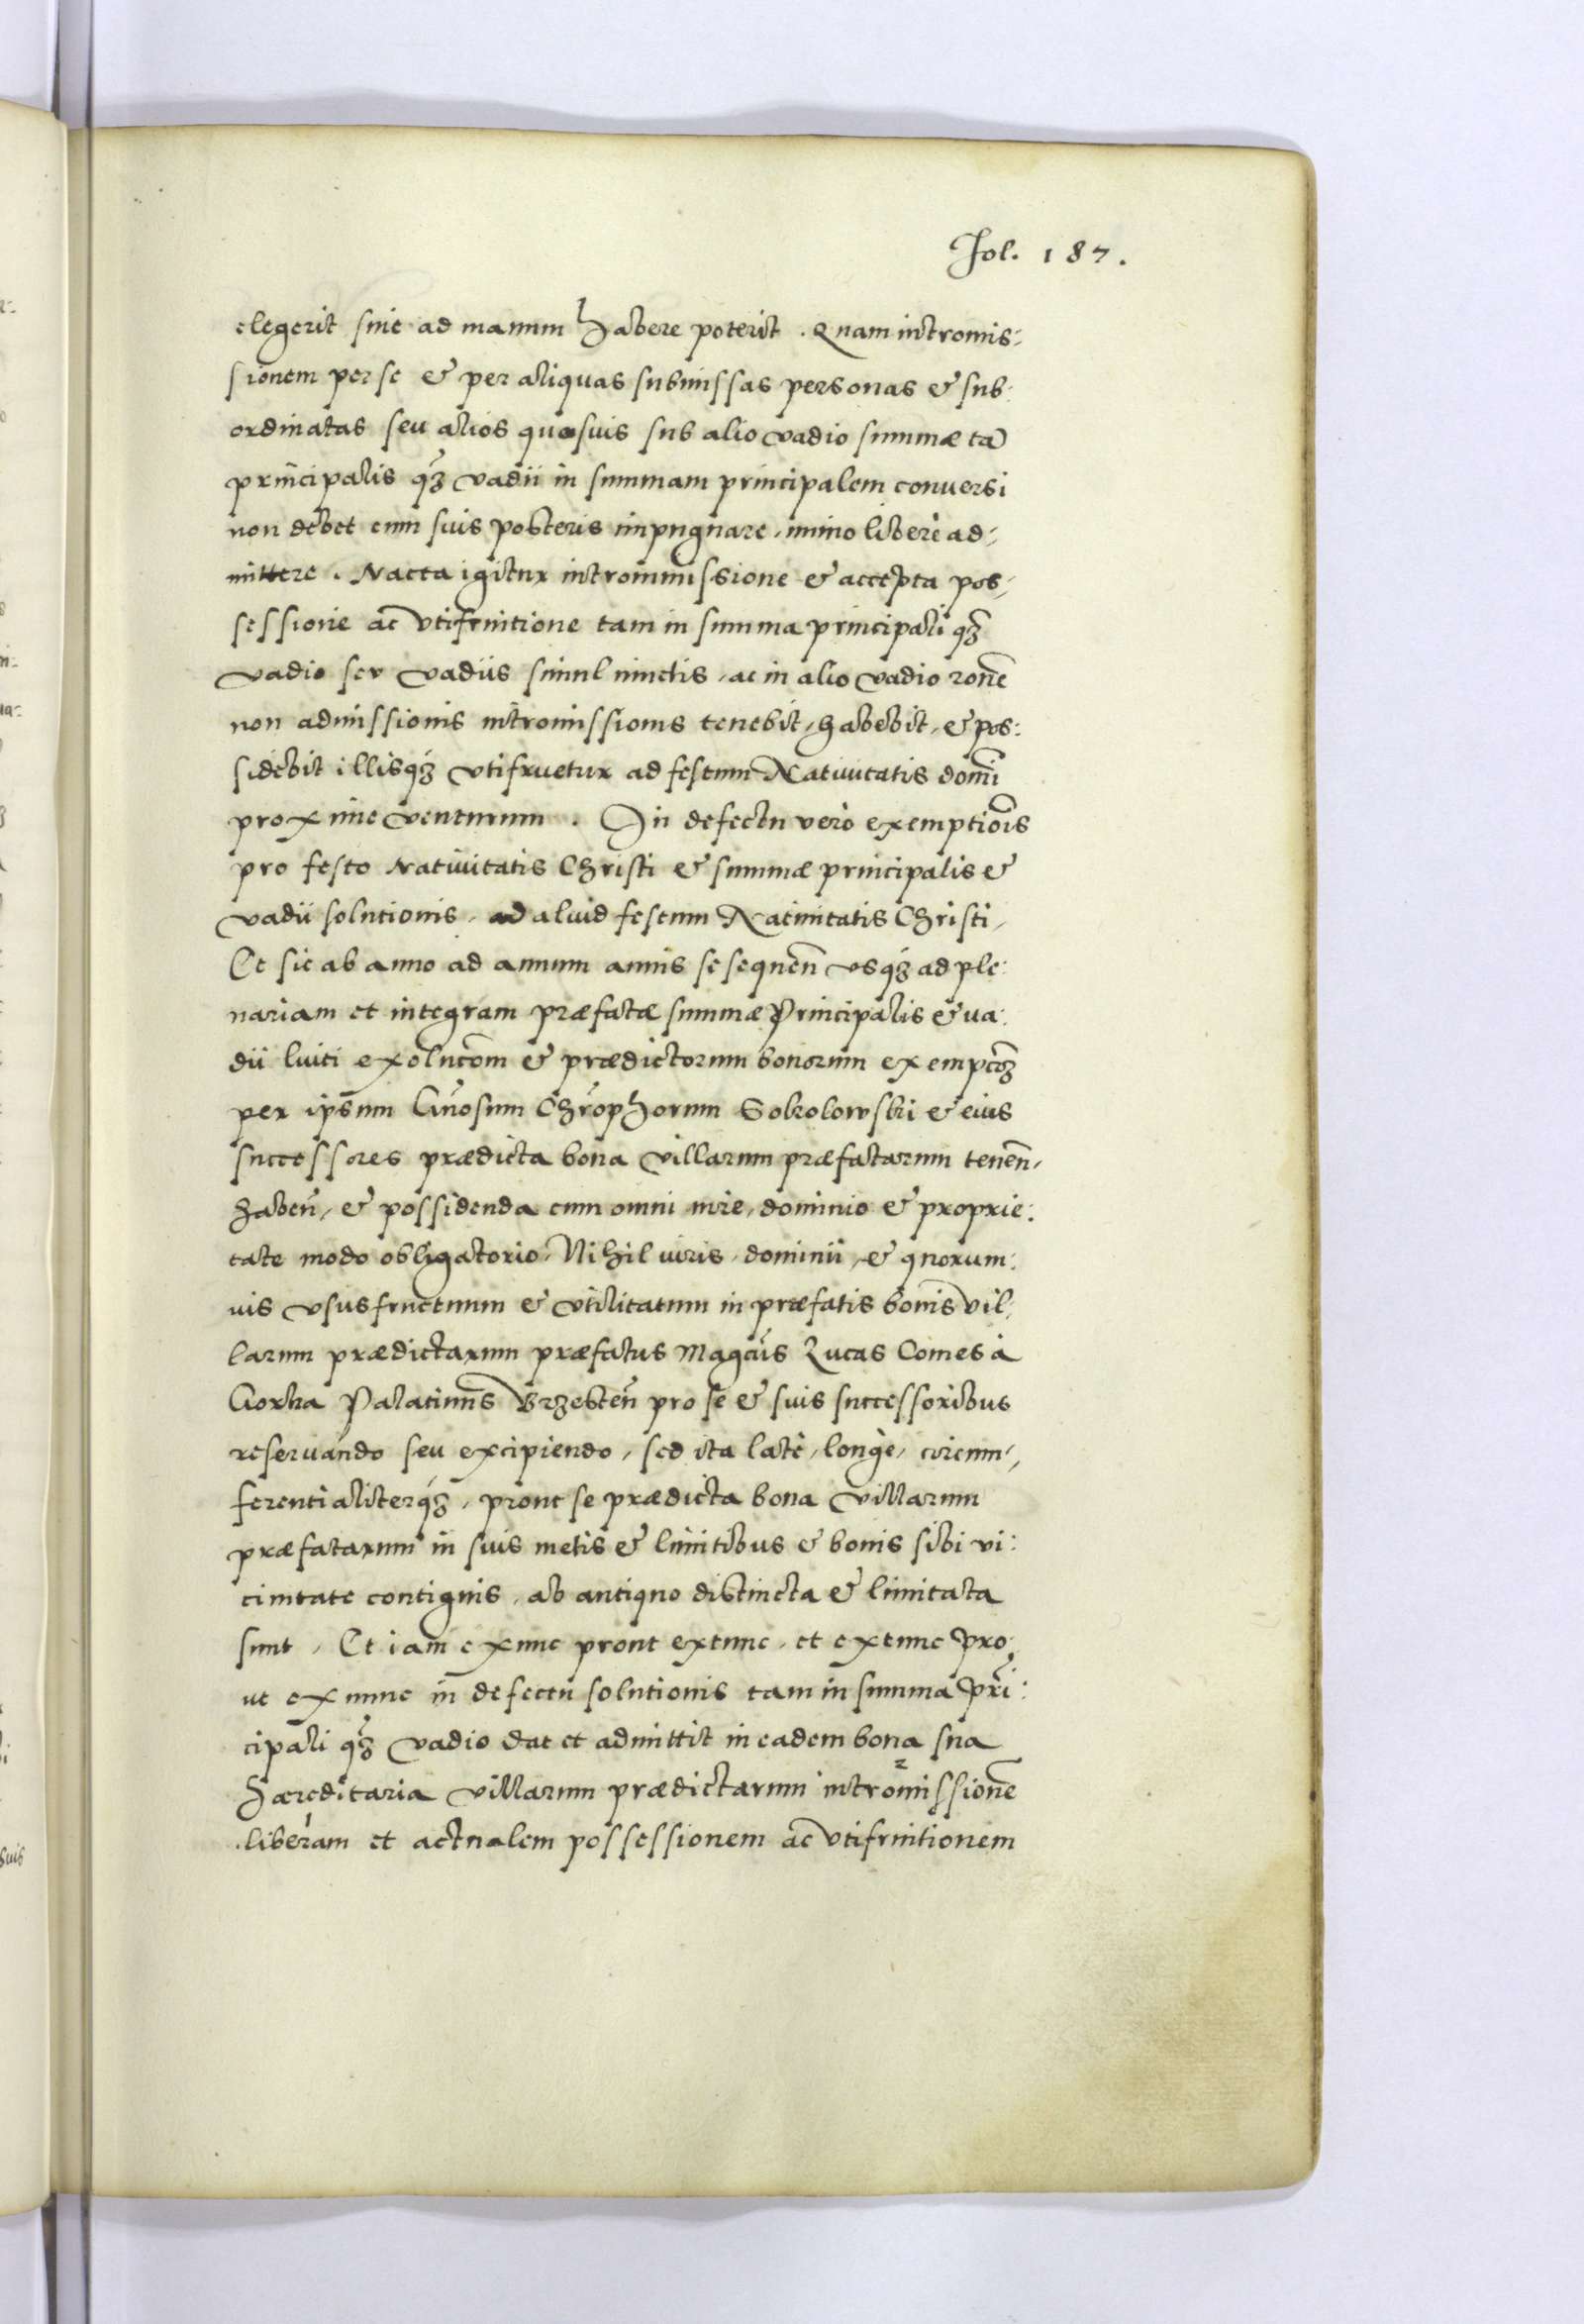 Fol. 187.
elegerit siue ad manum habere poterit. Quam intromis:
sionem per se & per aliquas submissas personas & sub:
ordinatas seu alios quosuis sub alio vadio summæ tã
principalis q̃ʒ vadii in summam principalem conuersi
non debet cum suis posteris impugnare, immo liberè ad:
mittere. Nacta igitur intrommissione & accepta pos:
sessione ac vtifruitione tam in summa principali q̃ʒ
vadio seu vadiis simul iunctis, ac in alio vadio rõne
non admissionis intromissionis tenebit, habebit, & pos:
sidebit illisqʒ vtifruetur ad festum Natiuitatis domĩ
proxime venturum. In defectu verò exemptiõis
pro festo Natiuitatis Christi & summæ principalis &
vadii solutionis, ad aliud festum Natiuitatis Christi,
Et sic ab anno ad annum annis se sequeñ vsqʒ ad ple:
nariam et integram præfatæ summæ Principalis & va:
dii luiti exolucõm & prædictorum bonorum exempcõʒ
per ipsum Gñosum Chr̃ophorum Sokolowski & eius
successores prædicta bona villarum præfatarum teneñ,
habeñ, & possidenda cum omni iure, dominio & proprie:
tate modo obligatorio, Nihil iuris, dominii, & quorum:
uis vsusfructuum & vtilitatum in præfatis bonis vil:
larum prædictarum præfatus Magcũs Lucas Comes à
Gorka Palatinus Brzesteñ pro se & suis successoribus
reseruando seu excipiendo, sed ita latè, longè, circum:
ferentialiterqʒ, prout se prædicta bona villarum
præfatarum in suis metis & limitibus & bonis sibi vi:
cinitate contiguis, ab antiquo distincta & limitata
sunt, Et iam exnunc prout extunc, et extunc pro:
ut exnunc in defectu solutionis tam in summa pri̇:
cipali q̃ʒ vadio dat et admittit in eadem bona sua
hæreditaria villarum prædictarum intromissionẽ
liberam et actualem possessionem ac vtifruitionem